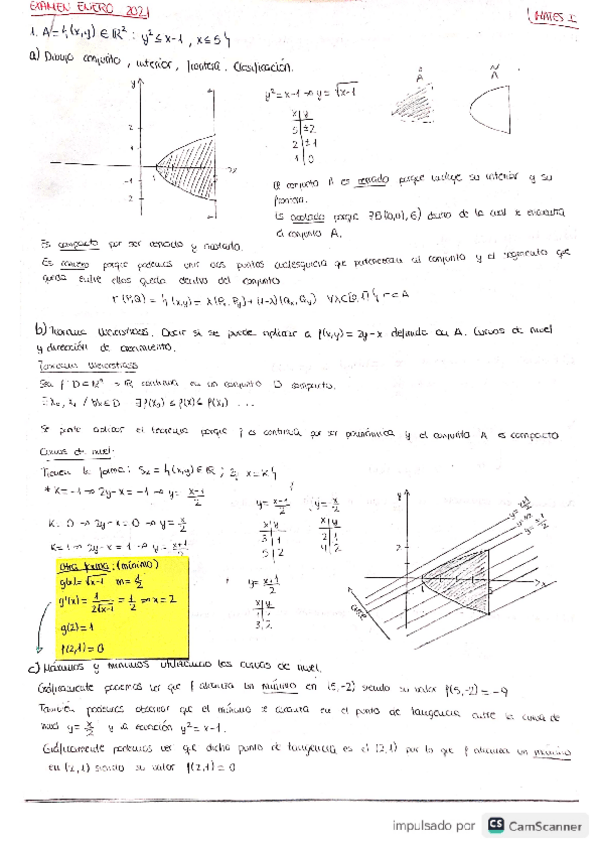 EXAMEN ENERO 2021
MATES I
1. A = {(x,y) ∈ ℝ² : y² ≤ x-1 , x ≤ 5}
a) Dibujo conjunto, interior, frontera. Clasificación.
y² = x-1 → y = √x-1
x | y
5 | ±2
2 | ±1
1 | 0
El conjunto A es cerrado porque incluye su interior y su
frontera.
Es acotado porque ∃B((0,0), ε) dentro de la cual se encuentra
el conjunto A.
Es compacto por ser cerrado y acotado.
Es convexo porque podemos unir dos puntos cualesquiera que pertenezcan al conjunto y el segmento que
queda entre ellos queda dentro del conjunto
b) Teorema Weierstrass. Decir si se puede aplicar a f(x,y) = 2y-x definida en A. Curvas de nivel
y dirección de crecimiento.
Teorema Weierstrass
continua en un conjunto D compacto.
Se puede aplicar el teorema porque f es continua por ser polinómica y el conjunto A es compacto
Curvas de nivel:
Tienen la forma:
* K=-1 → 2y-x = -1 → y = x-1/2
K=0 → 2y-x = 0 → y = x/2
K=1 → 2y-x = 1 → y = x+1/2
y = x-1/2
x | y
3 | 1
5 | 2
y = x/2
x | y
2 | 1
4 | 2
y = x+1/2
x | y
1 | 1
3 | 2
y = x+1/2
y = x/2
y = x-1/2
crece
Otra forma: (mínimo)
g(x) = √x-1 m = 1/2
g'(x) = 1/2√x-1 = 1/2 → x = 2
g(2) = 1
f(2,1) = 0
c) Máximos y mínimos utilizando las curvas de nivel.
Gráficamente podemos ver que f alcanza un mínimo en (5,-2) siendo su valor f(5,-2) = -9
También podemos observar que el mínimo se encuentra en el punto de tangencia entre la curva de
nivel y = x/2 y la ecuación y² = x-1.
Gráficamente podemos ver que dicho punto de tangencia es el (2,1) por lo que f alcanza un mínimo
en (2,1) siendo su valor f(2,1) = 0
impulsado por CS CamScanner